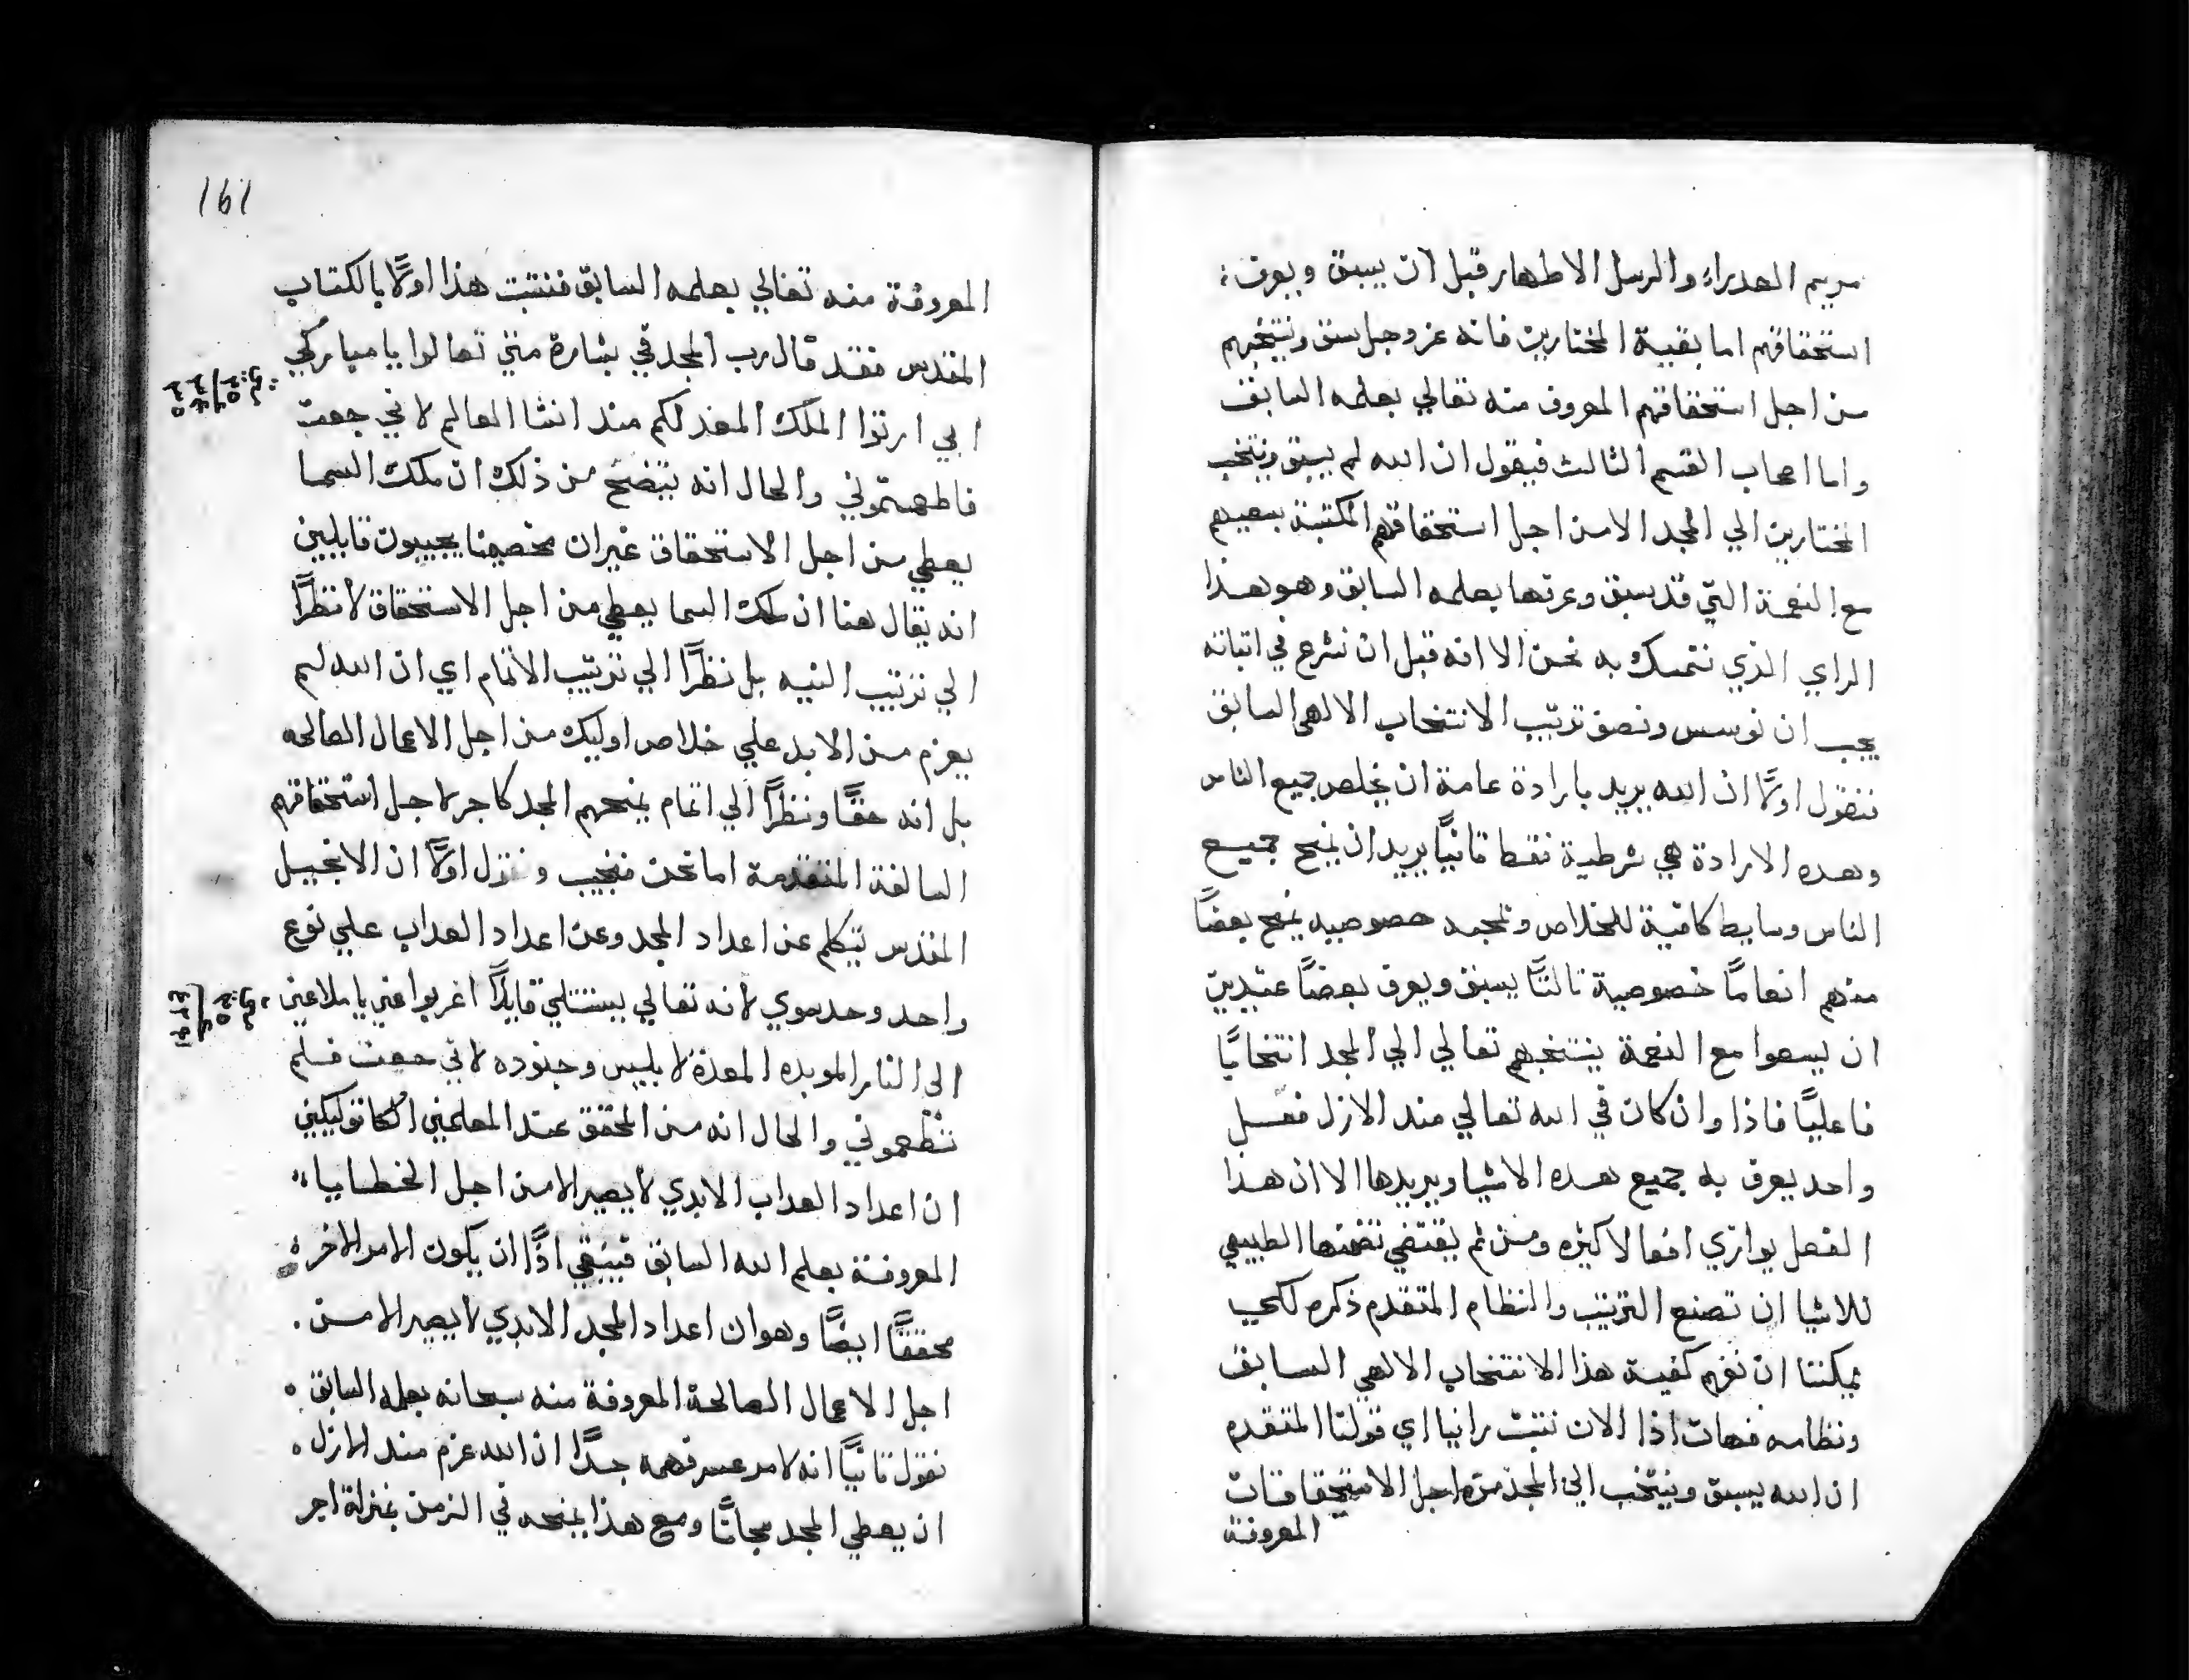 مريم العدراء والرسل الاطهار قبل ان يسبق ويعرف
استحقاقهم اما بقية المختارين فانه عز وجل سبق وينتخبهم
من اجل استحقاقهم المعروف منه تعالي بعلمه السابق
واما اصحاب القسم الثالث فيقول ان الله لم يسبق وينتخب
المختارين الي المجد الا من اجل استحقاقهم المكتبة بسعيهم
مع النعمة التي قد سبق وعرفها بعلمه السابق وهو هذا
الراي الذي نتمسك به نحن الا انه قبل ان نشرع في اتباته
يجب ان نوسس ونصف ترتيب الانتخاب الالهي السابق
فنقول اولاً ان الله يريد بارادة عامة ان يخلص جميع الناس
وهده الارادة هي شرطية فقط تانيًا يريد ان يمنح جميع
الناس وسايط كافية للخلاص وتمجيد خصوصيه يمنح بعضًا
منهم انعامًا خصوصية تالتًا يسبق ويعرف بعضًا عتيدين
ان يسعوا مع النعمة ينتخبهم تعالي الي المجد انتخابًا
فاعليًا فاذا وان كان في الله تعالي مند الازل فعل
واحد يعرف به جميع هده الاشيا ويريدها الا ان هذا
الفعل يوازي افعالا كثيره ومن ثم يقتفي نفسها الطبيعي
للاشيا ان تصنع الترتيب والنظام المتقدم ذكره لكي
يمكننا ان نفهم كيفية هذا الانتخاب الالهي السابق
ونظامه فهات اذا الان نتبت راينا اي قولنا المتقدم
ان الله يسبق وينتخب الي المجد من اجل الاستحقاقات
المعروفة
161
المعروفة منه تعالي بعلمه السابق فنتبت هذا اولاً بالكتاب
المقدس فقد قال رب المجد في بشارة متي تعالوا يا مباركي
ابي ارتوا الملك المعد لكم مند انشا العالم لاني جعت
فاطعمتموني والحال انه يتضح من ذلك ان ملك السما
يعطي من اجل الاستحقاق غير ان مخصمينا يجيبون قايلين
انه يقال هنا ان ملك السما يعطي من اجل الاستحقاق لا نظرًا
الي ترتيب النيه بل نظرًا الي ترتيب الاتمام اي ان الله لم
يعزم من الابد علي خلاص اوليك من اجل الاعمال الصالحه
بل انه حقًا ونظرًا الي اتمام يمنحهم المجد كاجر لاجل استحقاقهم
السالفة المتقدمة اما نحن فنجيب ونقول اولاً ان الانجيل
المقدس تيكلم عن اعداد المجد وعن اعداد العداب علي نوع
واحد وحد سوي لانه تعالي يستتلي قايلاً اغربوا عني يا ملاعين
الى النار الموبده المعدة لابليس وجنوده لاني جعت فلم
تطعموني والحال انه من المحقق عند المعلمين الكاتوليكيين
ان اعداد العداب الابدي لا يصير الا من اجل الخطايا
المعروفة بعلم الله السابق فيبقي اذًا ان يكون الامر الاخر
محققًا ايضًا وهو ان اعداد المجد الابدي لا يصير الا من
اجل الاعمال الصالحة المعروفة منه سبحانه بعلمه السابق
نقول تانيًا انه لامر عسر فهمه جدًا ان الله عزم مند الازل
ان يعطي المجد مجانًا ومع هذا يمنحه في الزمن بمنزلة اجر